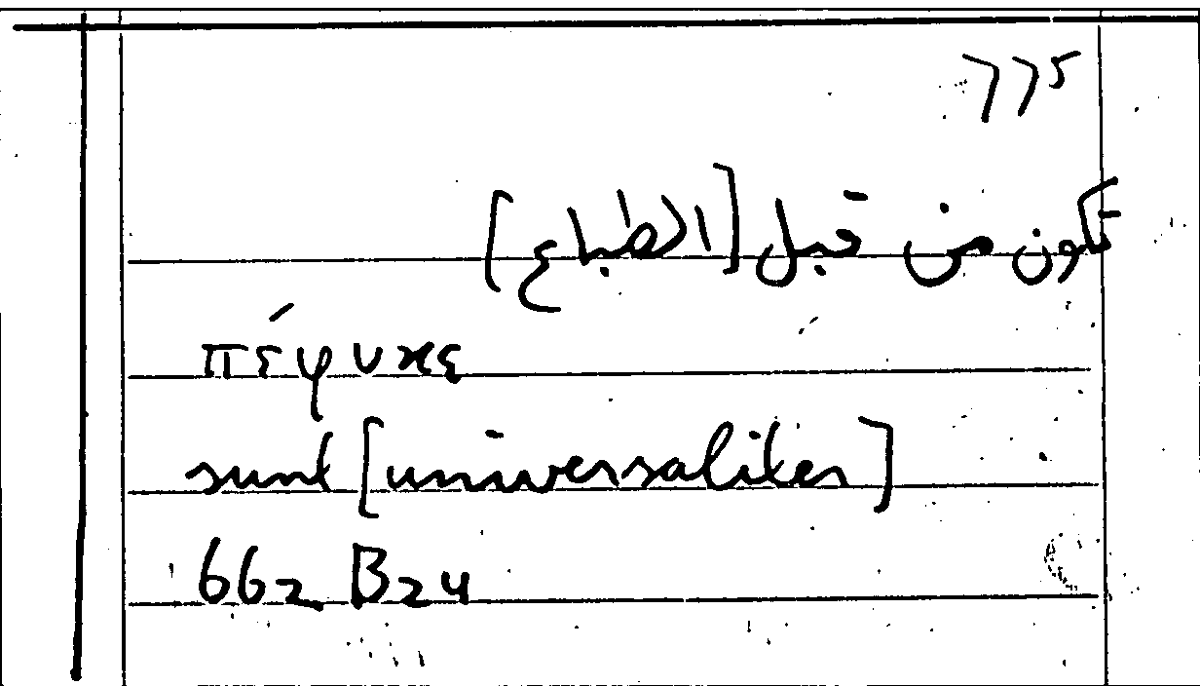 775
تكون من قبل [الطباع]
πέφυκε
sunt [universaliter]
662 B24